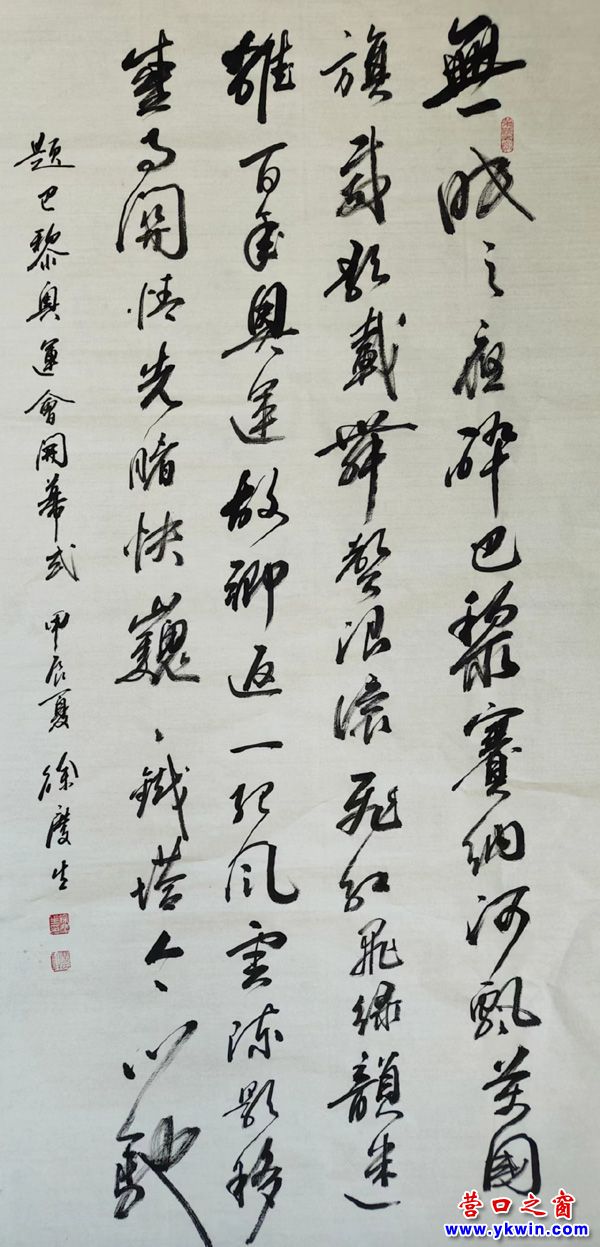 無眠之夜醉巴黎賽納河飄萬國
旗載歌載舞聲浪滾飛紅飛綠韻迷
離百年奧運故鄉返一紀風雲影移
盛事關情先睹快巍巍鐵塔令心馳
題巴黎奧運會開幕式 甲辰夏 徐慶生
营口之窗
www.ykwin.com